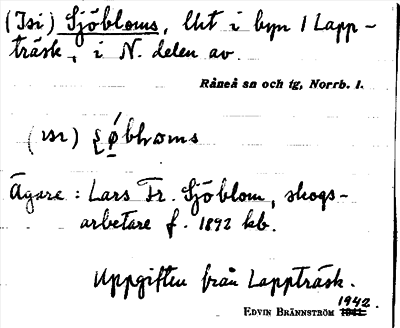 (Isi) Sjöbloms, lht i byn 1 Lapp-
träsk, i N. delen av.
Råneå sn och tg, Norrb. l.
Ägare: Lars Fr. Sjöblom, skogs-
arbetare f. 1892 kb.
Uppgiften från Lappträsk.
1942.
EDVIN BRÄNNSTRÖM